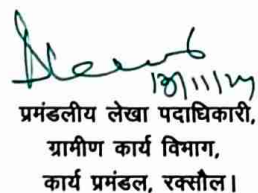 13/11/24
प्रमंडलीय लेखा पदाधिकारी,
ग्रामीण कार्य विभाग,
कार्य प्रमंडल, रक्सौल।